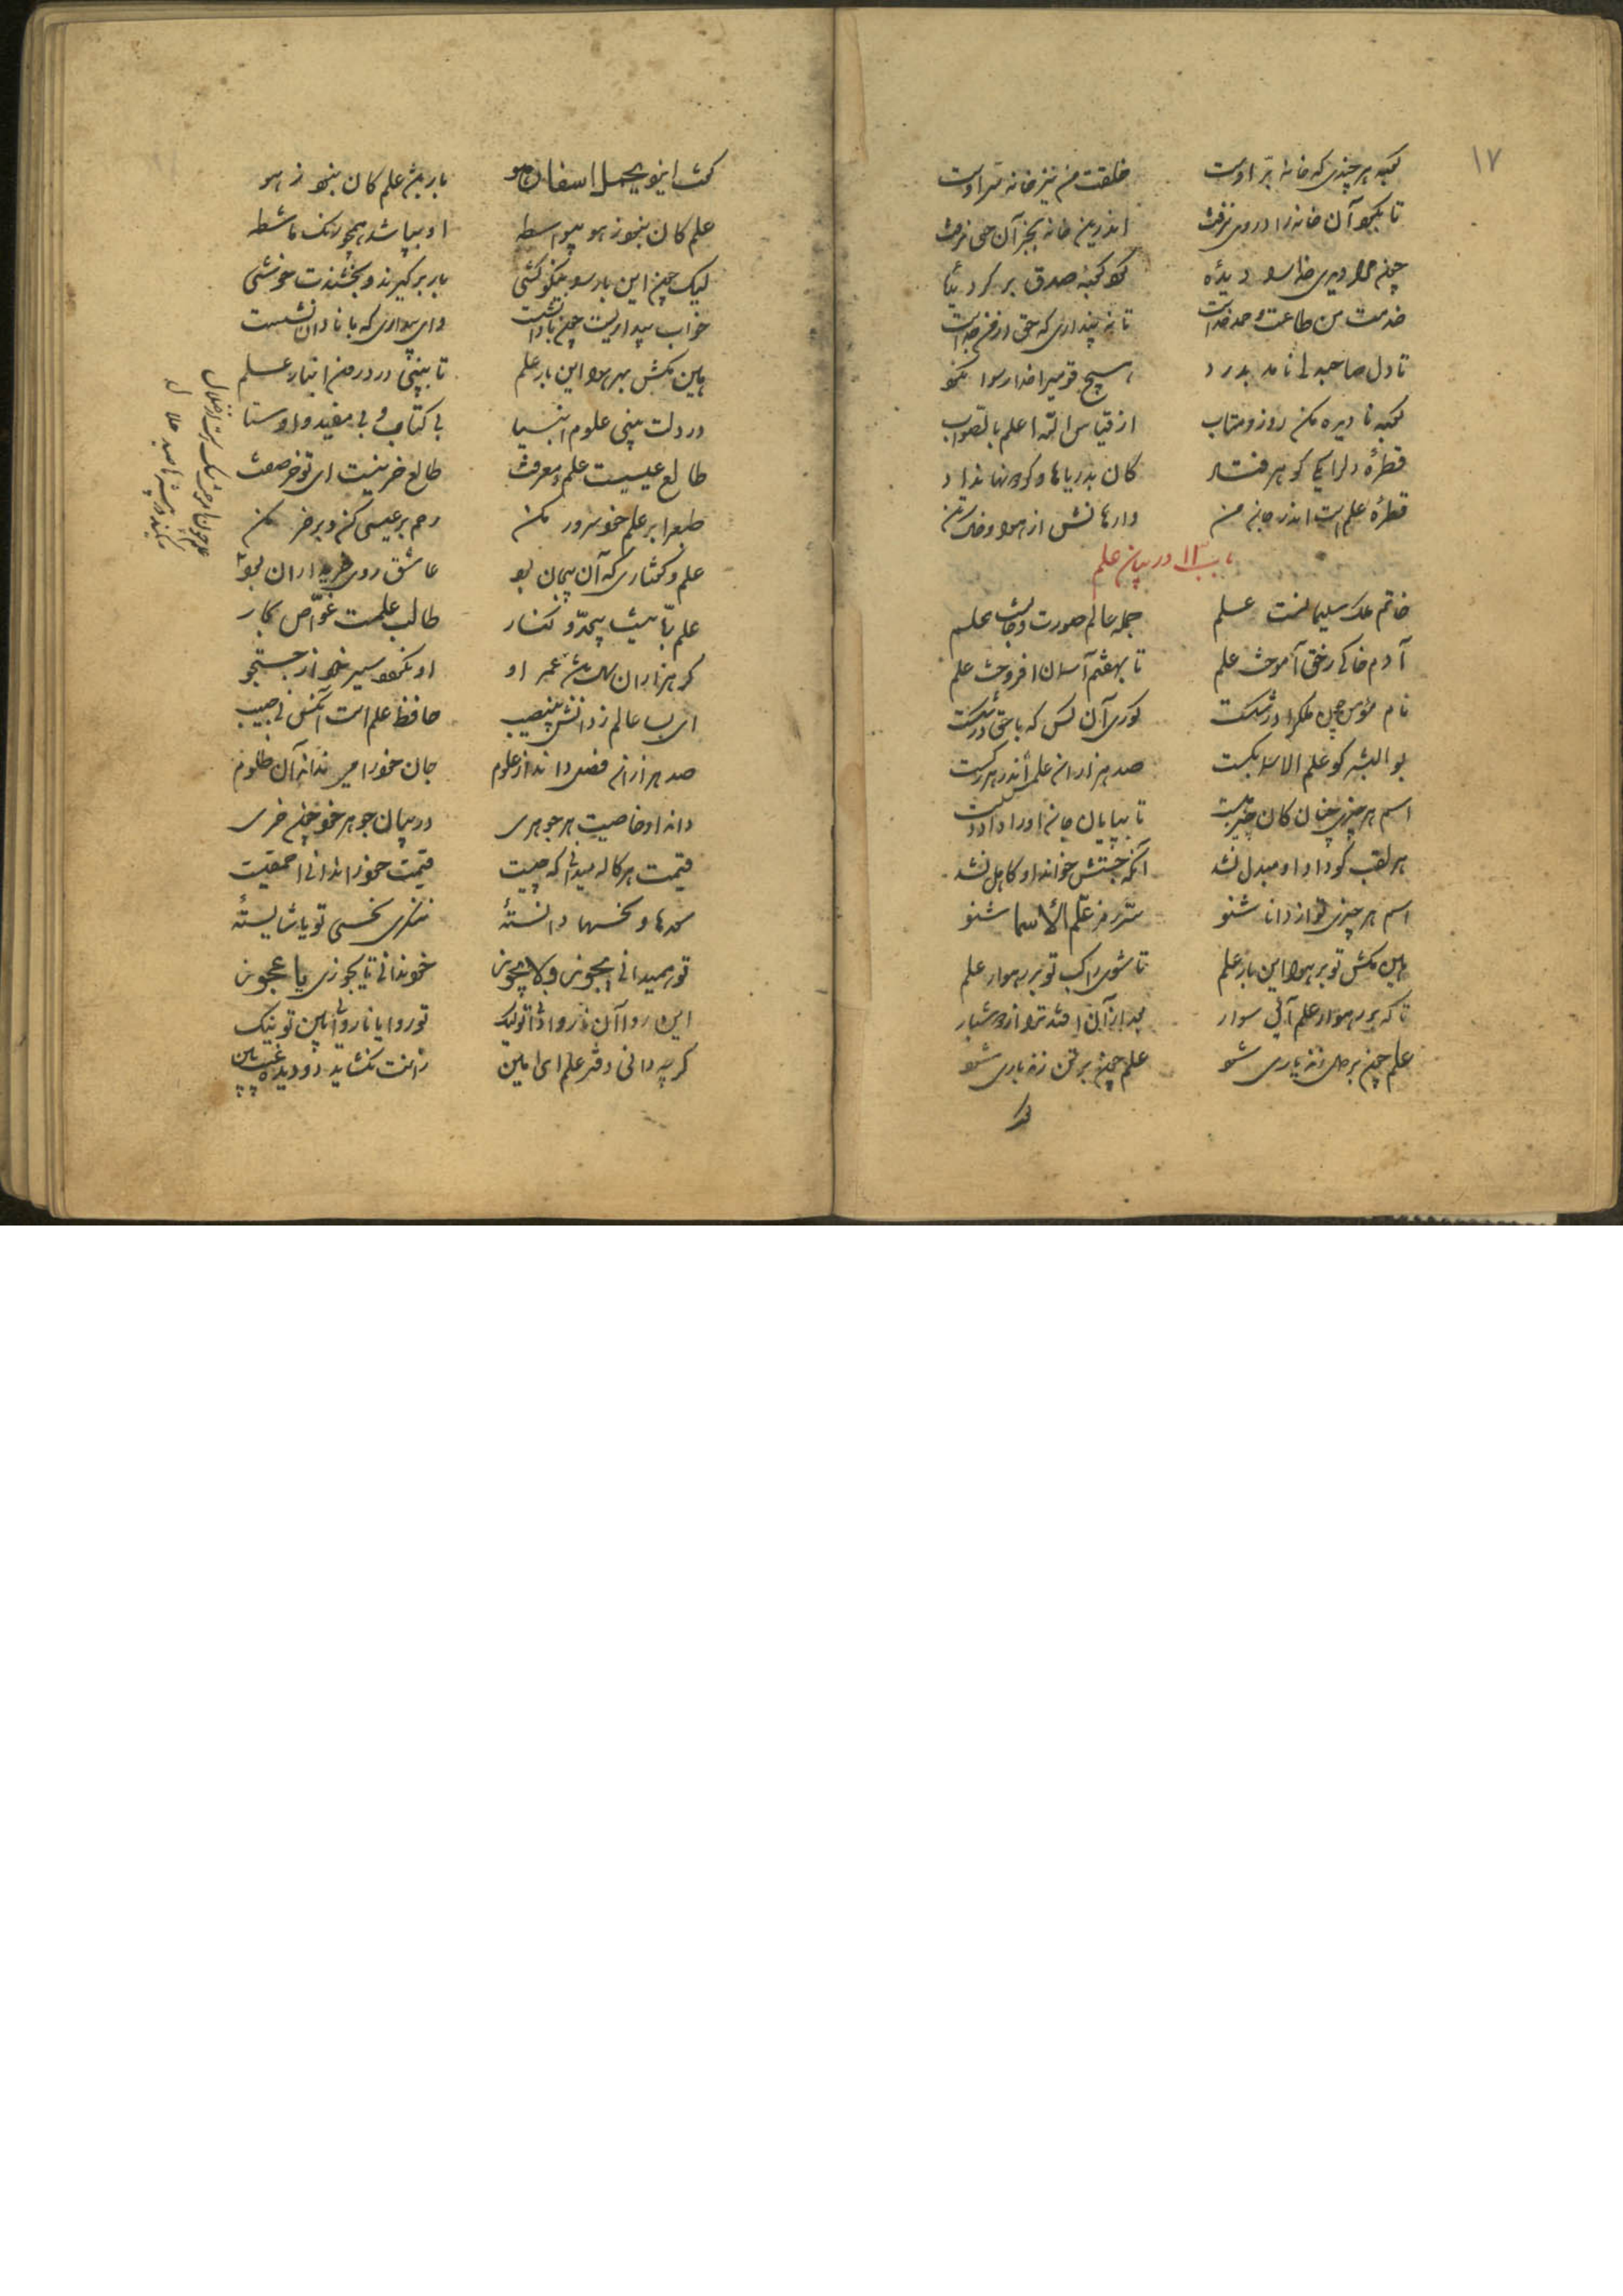 ۱۷
کعبه هر چندی که خانه برّ اوست خلقت من نیز خانه سر اوست
تا بکرد آن خانه را در وی نرفت اندرین خانه بجز آن حی نرفت
چون مرا دیدی خدا را دیدهٔ کرد کعبه صدق بر گردیدهٔ
خدمت من طاعت و حمد خداست تا نه پنداری که حق از من جداست
تا دل صاحبدلی نامد بدرد هیچ قومیرا خدا رسوا نکرد
کعبه نادیده مکن رو زو متاب از قیاس الله اعلم بالصّواب
قطرهٔ دل را یکی گوهر فتاد کان بدریاها و گردونها نداد
قطرهٔ علم است اندر جان من وارهانش از هوا وز خاک تن
باب ۱۳ در بیان علم
خاتم ملک سلیمانست علم جمله عالم صورت و جانست علم
آدم خاکی ز حق آموخت علم تا بهفتم آسمان افروخت علم
نام و ناموس ملک را در شکست کوری آن کس که با حق در شکست
بو البشر کو علم الاسما بکست صد هزاران علمش اندر هر رکست
اسم هر چیزی چنان کان چیز هست تا بپایان جان او را داد دست
هر لقب کو داد او مبدل نشد آنکه چستش خواند او کاهل نشد
اسم هر چیزی تو از دانا شنو سرّ رمز علّم الأسما شنو
هین مکش تو بر هوا این بار علم تا شوی راکب تو بر رهوار علم
تا که بر رهوار علم آئی سوار بعد از آن افتد ترا از دوش بار
علم چون بر دل زند یاری شود علم چون بر تن زند باری شود
گفت ایزد یحمل اسفاره بار باشد علم کان نبود ز هو
علم کان نبود ز هو بیواسطه او نپاید همچو رنگ ماشطه
لیک چون این بار را نیکو کشی بار برگیرند و بخشندت خوشی
خواب بیداریست چون با دانشست وای بیداری که با نادان نشست
هین مکش بهر هوا این بار علم تا ببینی در درون انبار علم
در دلت بینی علوم انبیا بی کتاب و بی مفید و اوستا
طالع عیسیست علم و معرفت طالع خر نیست ای تو خر صفت
رحم بر عیسی کن و بر خر مکن طبع را بر علم خود سرور مکن
علم و گفتاری که آن بیجان بود عاشق روی خریداران بود
علم دریائیست بیحدّ و کنار طالب علمست غوّاص بحار
گر هزاران سال باشد عمر او او نگردد سیر خود از جستجو
ای بسا عالم ز دانش بی نصیب حافظ علم است آنکس نی حبیب
صد هزاران فضل داند از علوم جان خود را می نداند آن ظلوم
داند او خاصیت هر جوهری در بیان جوهر خود چون خری
قیمت هر کاله میدانی که چیست قیمت خود را ندانی احمقیست
سعدها و نحسها دانستهٔ ننگری نحسی تو یا شایستهٔ
تو همیدانی یجوز و لا یجوز خود ندانی تا یجوزی یا عجوز
این روا آن ناروا دانی و لیک تو روا یا ناروائی بین تو نیک
گر چه دانی دفتر علم ای امین زانت نگشاید دو دیده غیب بین